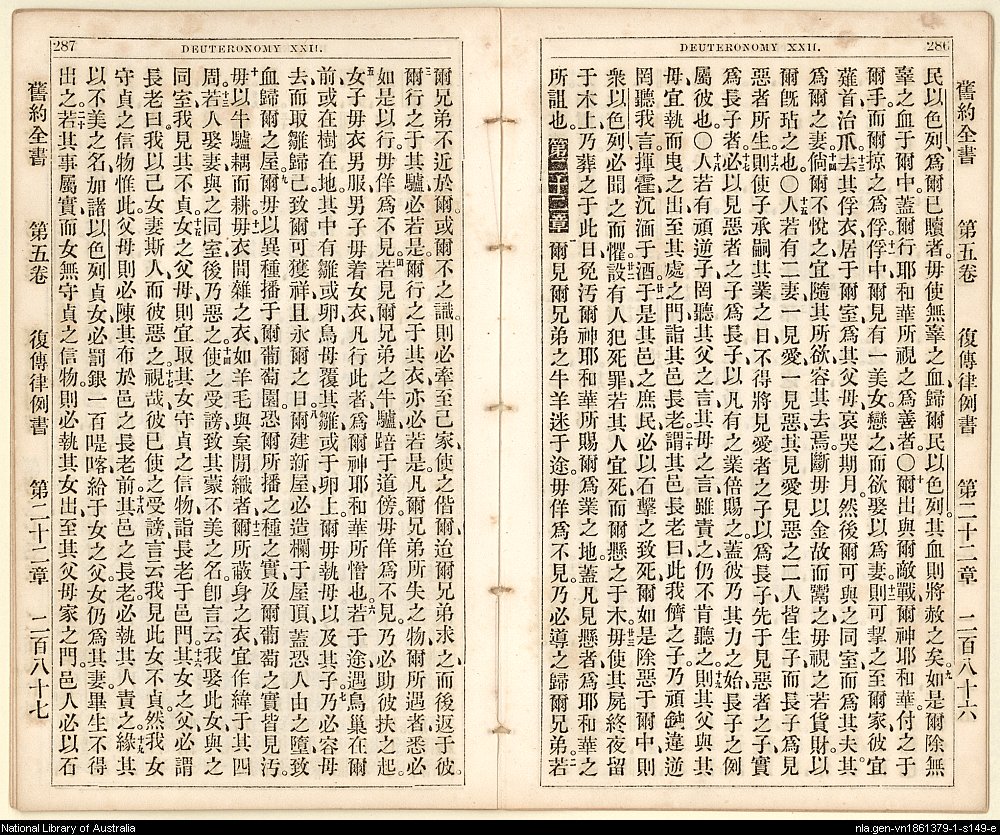 286
DEUTERONOMY XXII.
舊約全書 第五卷 復傳律例書 第二十二章 二百八十六
民以色列、為爾已贖者。毋使無辜之血、歸爾民以色列。其血則將赦之矣。如是爾除無
辜之血于爾中、蓋爾行耶和華所視之為善者。〇爾出與爾敵戰、爾神耶和華付之于
爾手、而爾掠之為俘。俘中爾見有一美女、戀之而欲娶以為妻、則可挈之至爾家、彼宜
薙首治爪、去其俘衣、居于爾室、為其父母哀哭期月。然後爾可與之同室、而為其夫、其
為爾之妻。倘爾不悅之、宜隨其所欲、容其去焉。斷毋以金故而鬻之、毋視之若貨財、以
爾既玷之也。〇人若有二妻、一見愛、一見惡、其見愛見惡之二人皆生子、而長子為見
惡者所生、則使子承嗣其業之日、不得將見愛者之子、以為長子、先于見惡者之子、實
為長子者、必以見惡者之子為長子、以凡有之業、倍賜之、蓋彼乃其力之始、長子之例
屬彼也。〇人若有頑逆子、罔聽其父之言、其母之言、雖責之、仍不肯聽之、則其父與其
母、宜執而曳之出、至其處之門、詣其邑長老、謂其邑長老曰、此我儕之子、乃頑餙違逆
罔聽我言、揮霍沉湎于酒。于是其邑之庶民、必以石擊之致死、爾如是除惡于爾中、則
衆以色列、必聞之而懼。設有人犯死罪、若其人宜死、而爾懸之于木、毋使其屍終夜留
于木上、乃葬之于此日、免汚爾神耶和華所賜爾為業之地、蓋凡見懸者、為耶和華之
所詛也。第二十二章 爾見爾兄弟之牛羊、迷于途、毋佯為不見、乃必導之歸爾兄弟。若
287
DEUTERONOMY XXII.
爾兄弟不近於爾、或爾不之識、則必牽至己家、使之偕爾、迨爾兄弟求之、而後返于彼。
爾行之于其驢、必若是、爾行之于其衣、亦必若是。凡爾兄弟所失之物、爾所遇者、悉必
如是以行、毋佯為不見。若見爾兄弟之牛驢踣于道傍、毋佯為不見、乃必助彼扶之起。
女子毋衣男服、男子毋着女衣、凡行此者、為爾神耶和華所憎也。若于途遇鳥巢在爾
前、或在樹、在地、其中有雛或卵、鳥母覆其雛、或于卵上、爾毋執母以及其子。乃必容母
去、而取雛歸己、致爾可獲祥、且永爾之日。爾建新屋、必造欄于屋頂、蓋恐人由之墮、致
血歸爾之屋。爾毋以異種播于爾葡萄園、恐爾所播之種之實、及爾葡萄之實、皆見汚。
毋以牛驢耦而耕。毋衣間雜之衣、如羊毛與枲間織者。爾所蔽身之衣、宜作緯于其四
周。若人娶妻、與之同室後、乃惡之、使之受謗、致其蒙不美之名、卽言云、我娶此女、與之
同室、我見其不貞。女之父母、則宜取其女守貞之信物、詣長老于邑門。其女之父、必謂
長老曰、我以己女妻斯人、而彼惡之。視哉、彼已使之受謗言、云我見此女不貞、然我女
守貞之信物惟此。父母則必陳其布於邑之長老前。其邑之長老、必執其人責之。緣其
以不美之名、加諸以色列貞女、必罰銀一百㖷喀、給于女之父、女仍為其妻、畢生不得
出之。若其事屬實、而女無守貞之信物、則必執其女出、至其父母家之門、邑人必以石
舊約全書 第五卷 復傳律例書 第二十二章 二百八十七
National Library of Australia
nla.gen-vn1861379-1-s149-e